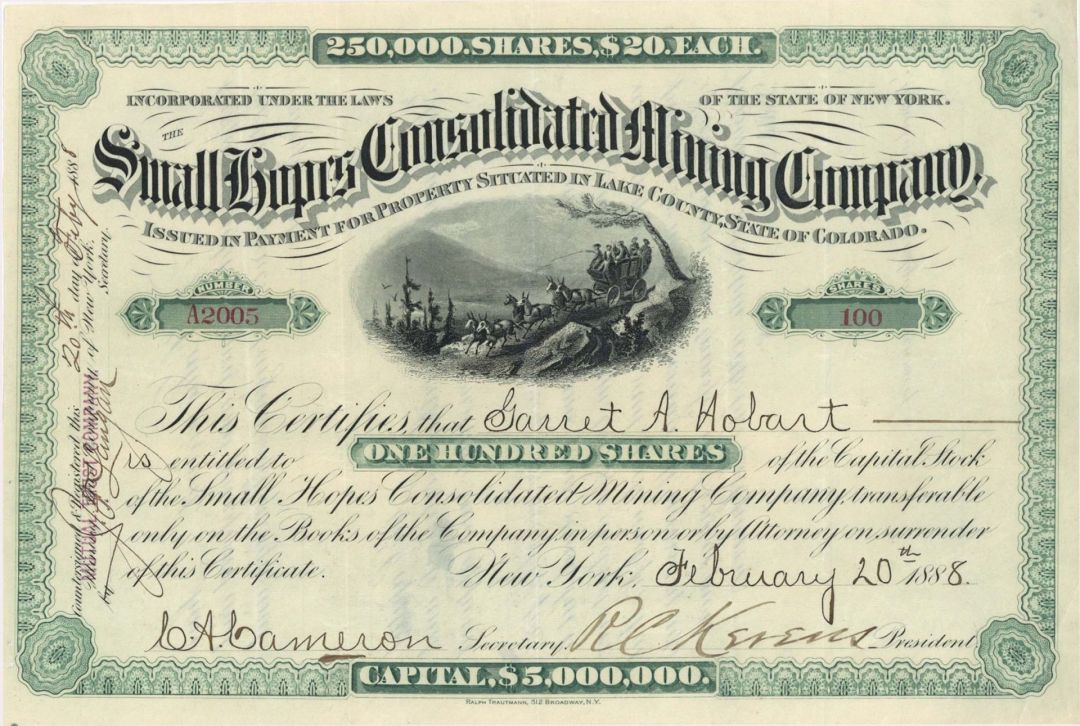 250,000.SHARES,$20.EACH.
INCORPORATED UNDER THE LAWS OF THE STATE OF NEW YORK.
THE
Small Hopes Consolidated Mining Company.
ISSUED IN PAYMENT FOR PROPERTY SITUATED IN LAKE COUNTY, STATE OF COLORADO.
NUMBER
A2005
SHARES
100
This Certifies, that Garret A. Hobart
is entitled to ONE HUNDRED SHARES of the Capital Stock
of the Small Hopes Consolidated Mining Company, transferable
only on the Books of the Company in person or by Attorney on surrender
of this Certificate. New York, February 20th 1888.
C.A. Cameron Secretary. R C Kerens President
CAPITAL, $5,000,000.
RALPH TRAUTMANN, 512 BROADWAY, N.Y.
Countersigned & Registered this 20th day Feby 1888
of New York.
by Secretary.